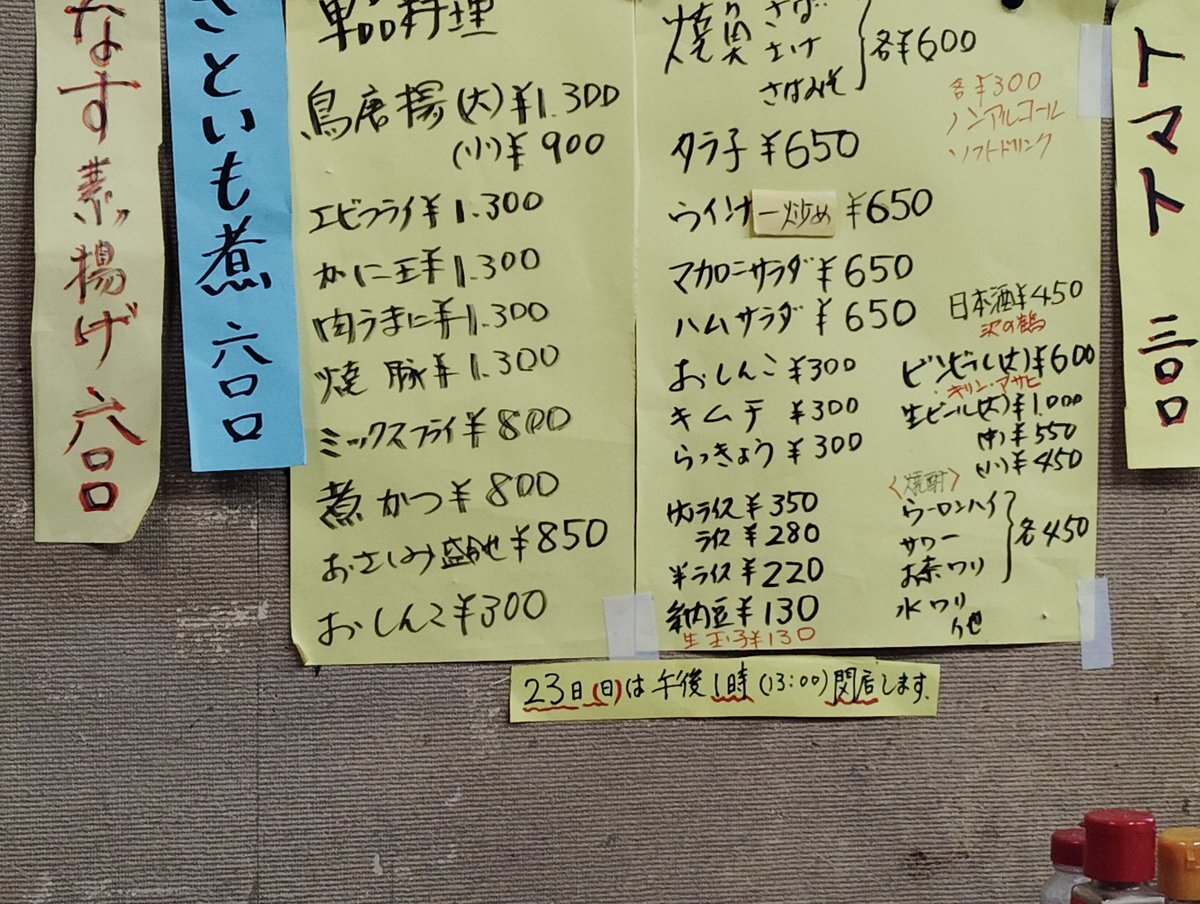 なす素揚げ 六百
さといも煮 六〇〇
単品料理
鳥唐揚(大)¥1.300
(小)¥900
エビフライ¥1.300
かに玉¥1.300
肉うまに¥1.300
焼豚¥1.300
ミックスフライ¥800
煮かつ¥800
おさしみ盛合せ¥850
おしんこ¥300
焼魚
さば
さけ
さばみそ
各¥600
タラ子¥650
ウインナー炒め¥650
マカロニサラダ¥650
ハムサラダ¥650
おしんこ¥300
キムチ¥300
らっきょう¥300
肉ライス¥350
ライス¥280
半ライス¥220
納豆¥130
生玉子¥130
各¥300
ノンアルコール
ソフトドリンク
日本酒¥450
沢の鶴
ビンビール(大)¥600
キリン・アサヒ
生ビール(大)¥1.000
(中)¥550
(小)¥450
〈焼酎〉
ウーロンハイ
サワー
お茶ワリ
各450
水ワリ
他
トマト 三〇〇
23日(日)は午後1時(13:00)閉店します.